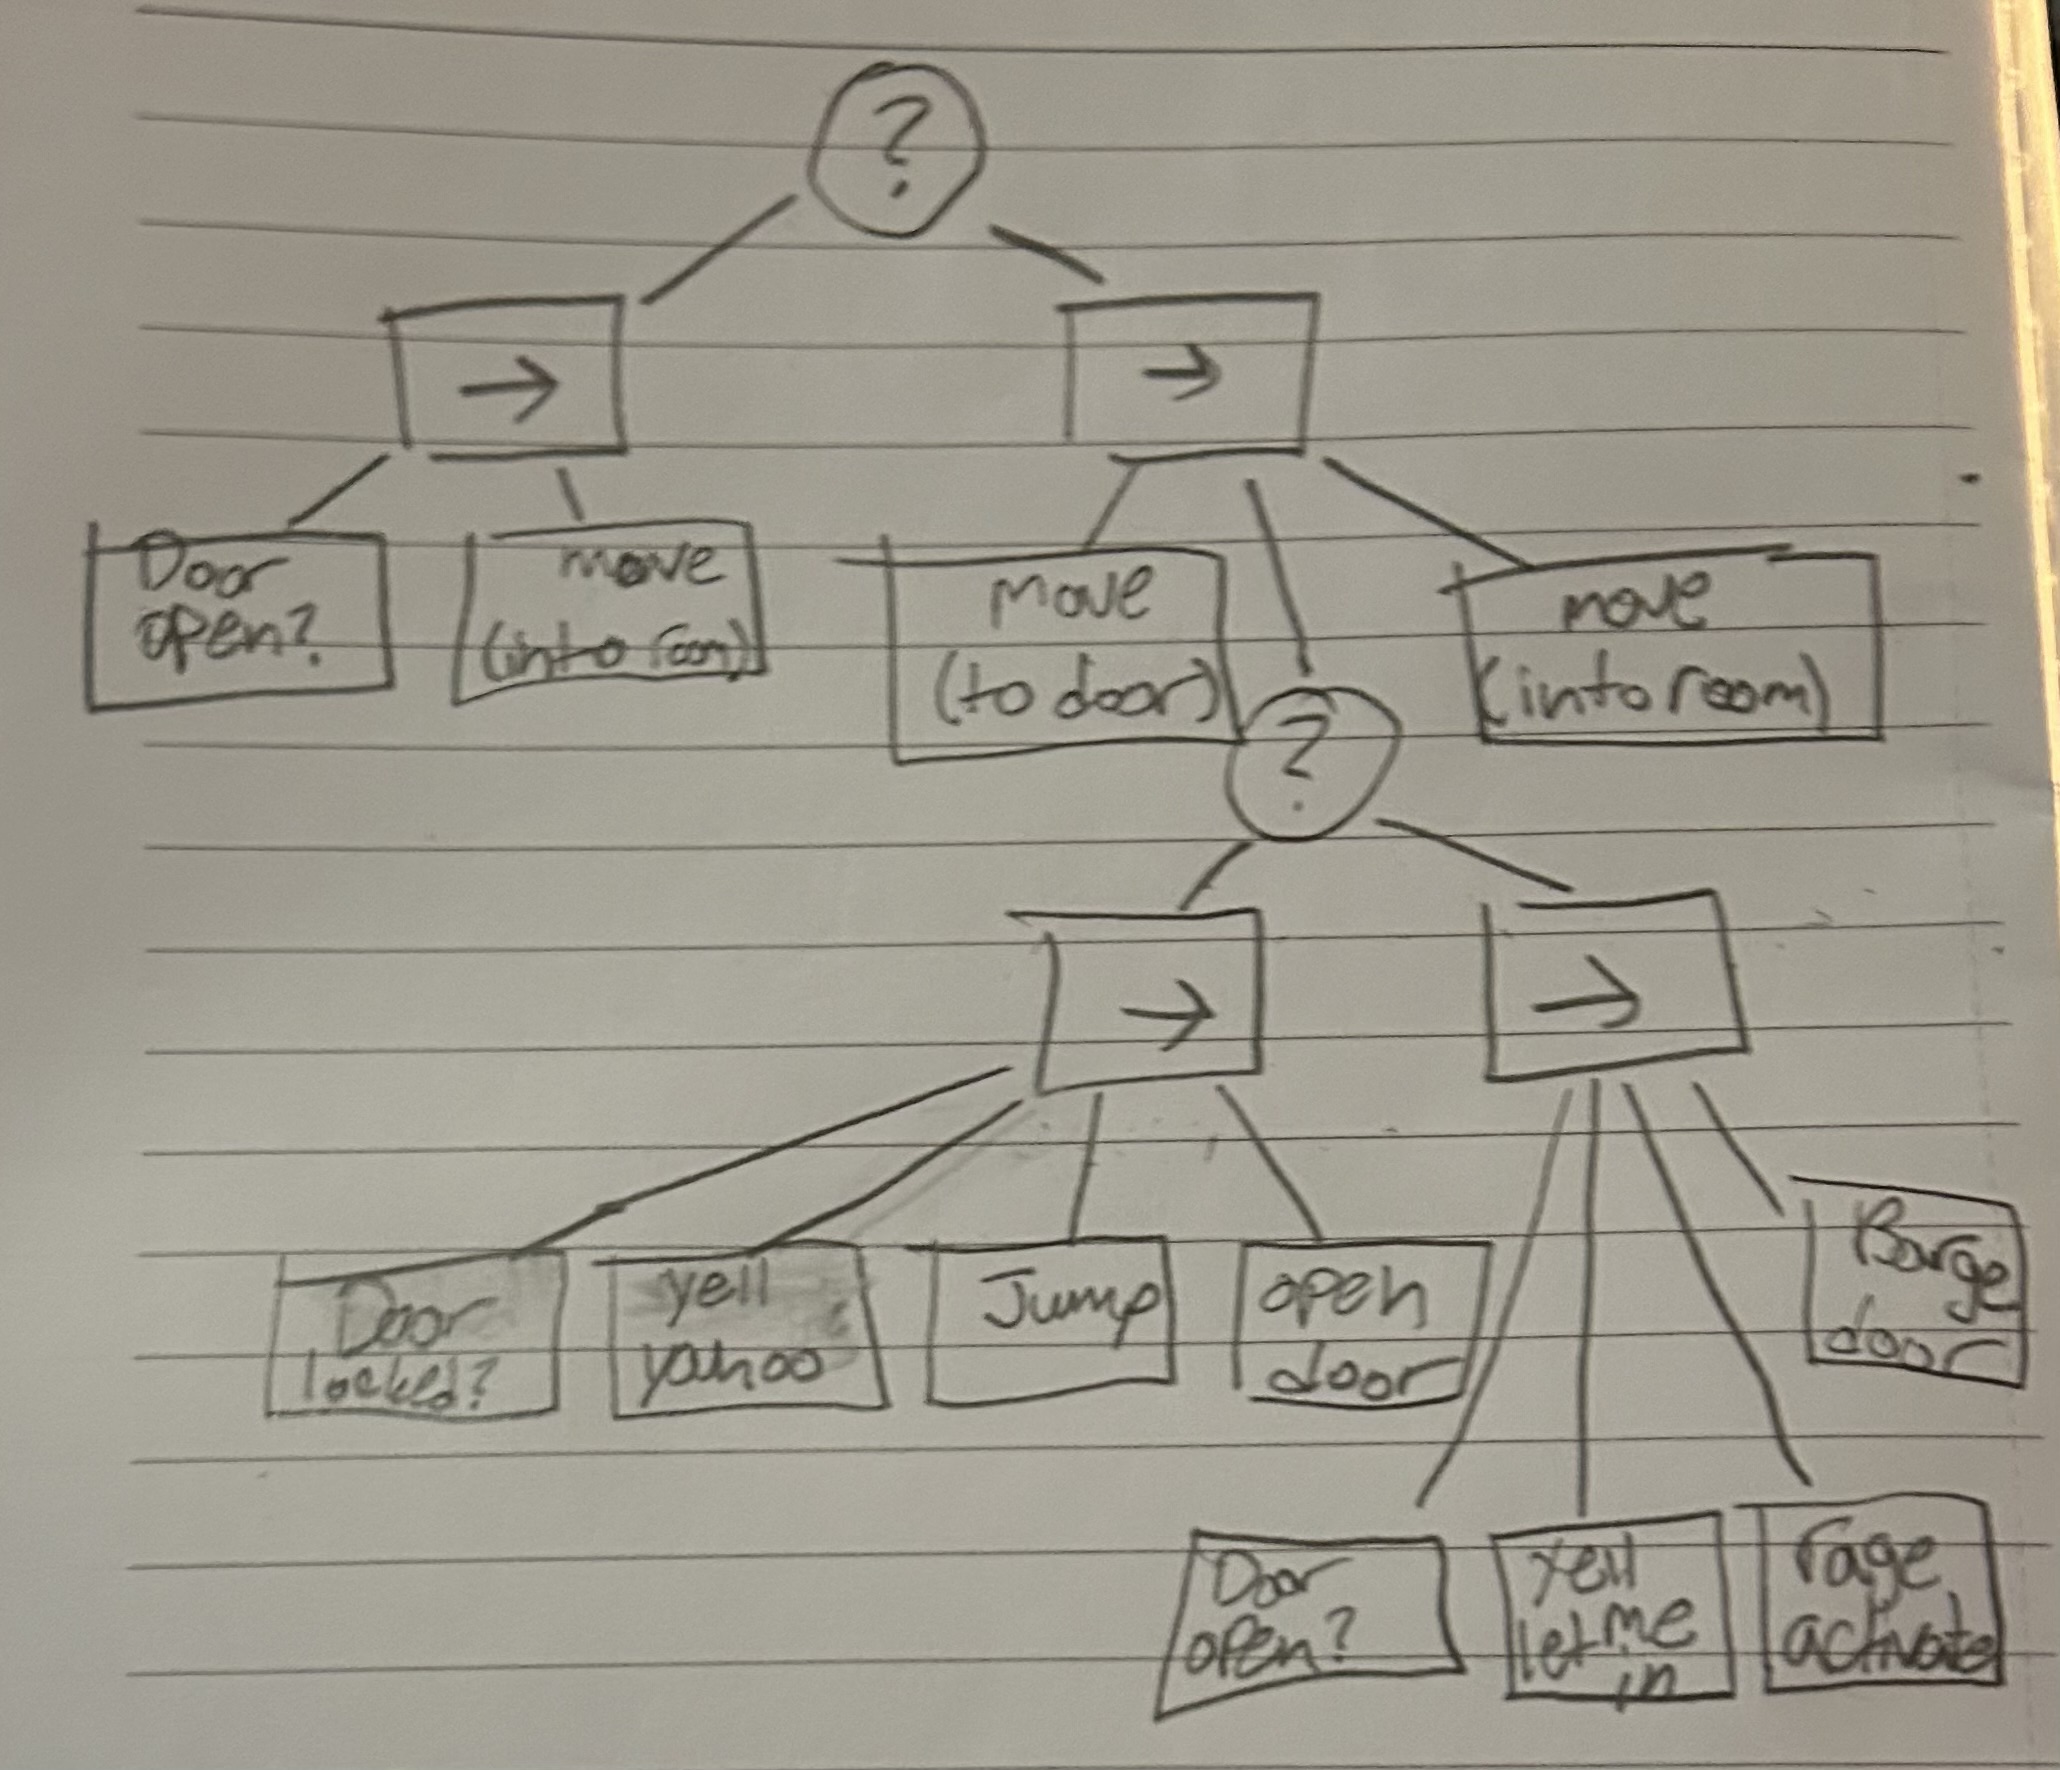 ?
→
→
Door
open?
move
(into room)
Move
(to door)
move
(into room)
?
→
→
Door
locked?
yell
yahoo
Jump
open
door
Barge
door
Door
open?
Yell
let me
in
rage
activate